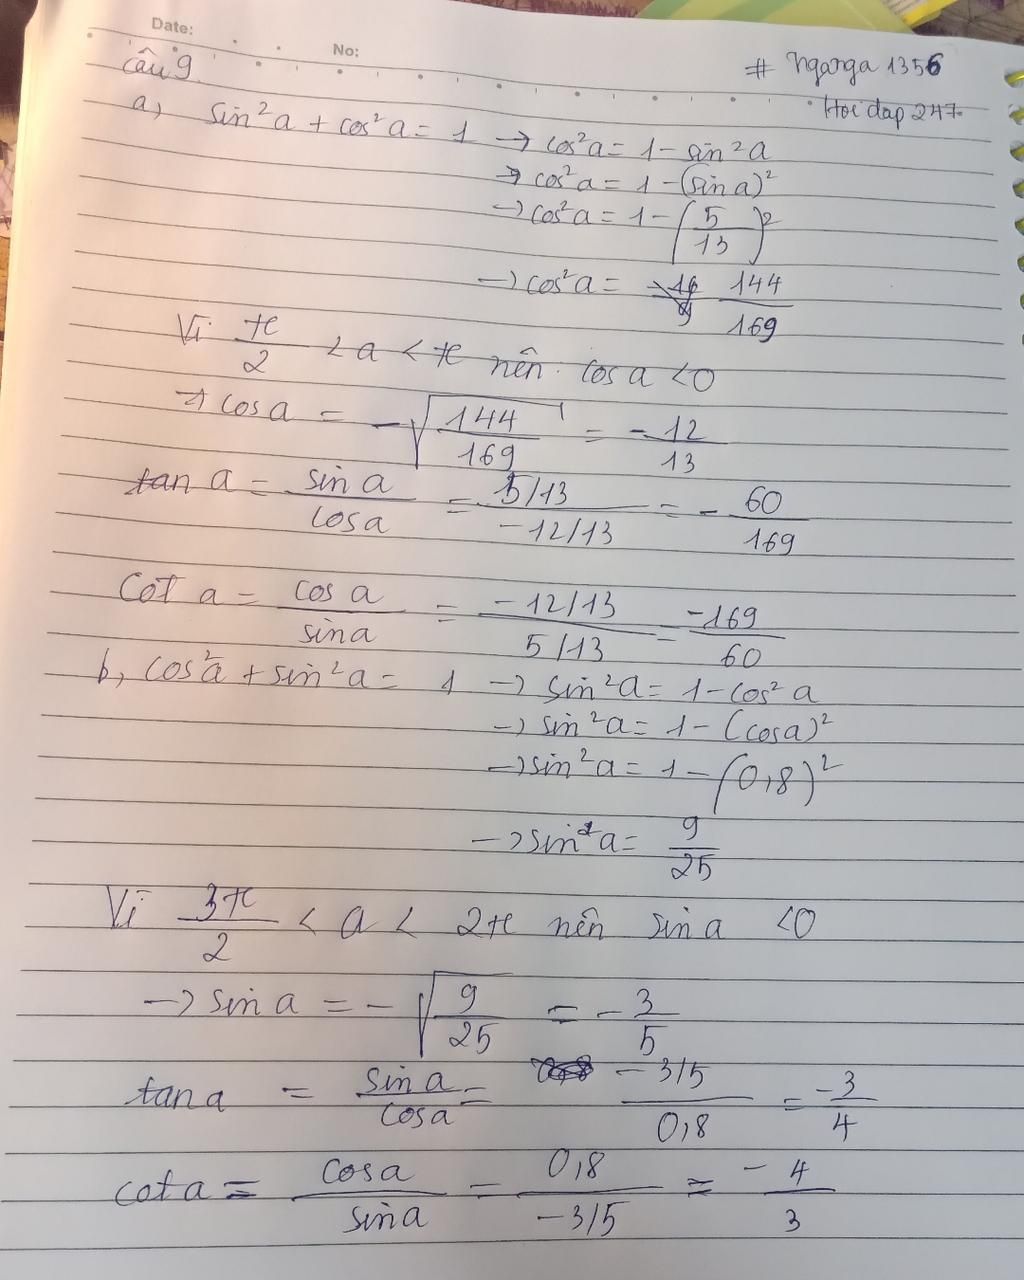 Date:
No:
# Nganga 1356
Hoi dap 247
Câu 9
a, sin²a + cos²a = 1 → cos²a = 1 - sin²a
→ cos²a = 1 - (sin a)²
→ cos²a = 1 - (5/13)²
→ cos²a = 144/169
Vì π/2 < a < π nên cos a < 0
→ cos a = -√(144/169) = -12/13
tan a = sin a/cos a = (5/13)/(-12/13) = -60/169
Cot a = cos a/sin a = (-12/13)/(5/13) = -169/60
b, cos²a + sin²a = 1 → sin²a = 1 - cos²a
→ sin²a = 1 - (cos a)²
→ sin²a = 1 - (0,8)²
→ sin²a = 9/25
Vì 3π/2 < a < 2π nên sin a < 0
→ sin a = -√(9/25) = -3/5
tan a = sin a/cos a = (-3/5)/(0,8) = -3/4
cot a = cos a/sin a = 0,8/(-3/5) = -4/3